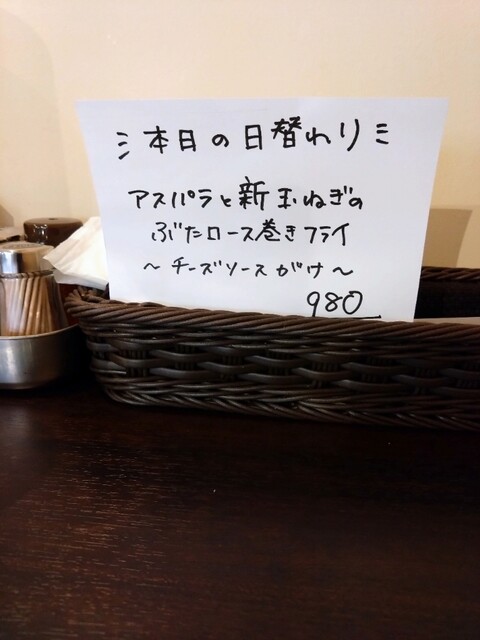 ミ本日の日替わりミ
アスパラと新玉ねぎの
ぶたロース巻きフライ
～チーズソースがけ～
980